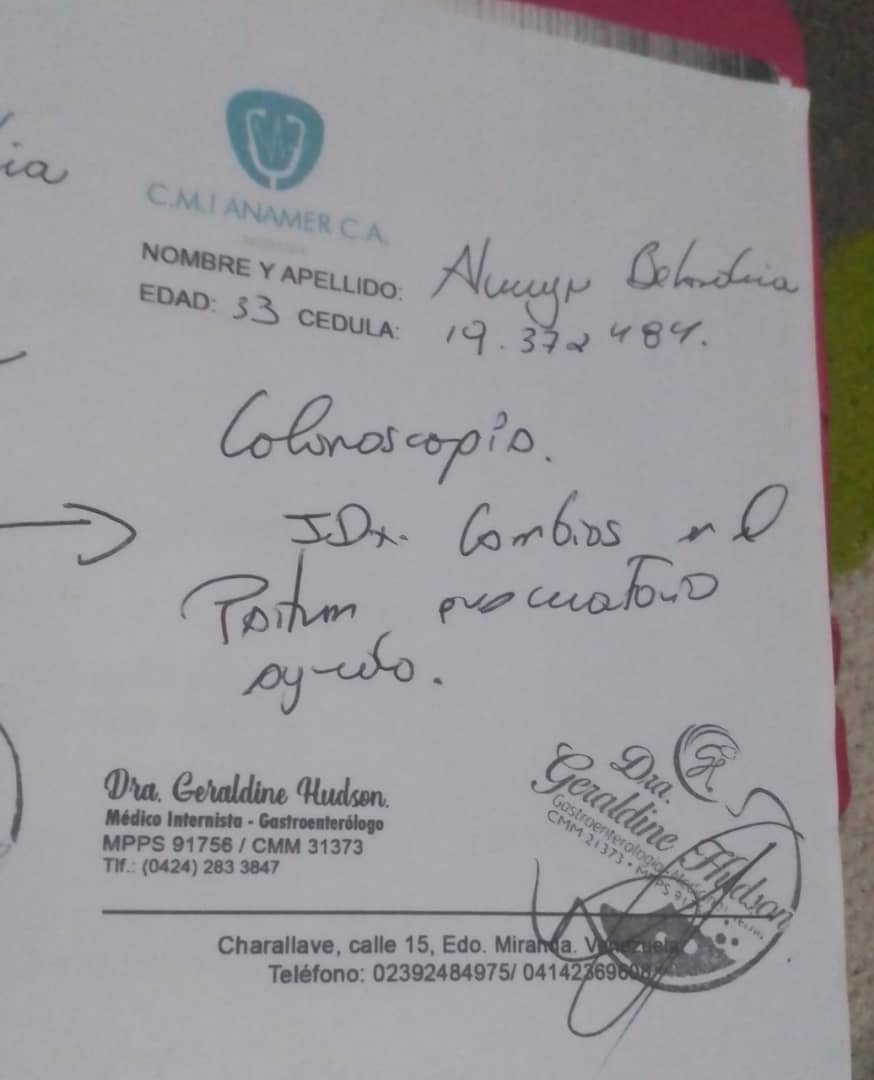 ia
C.M.I ANAMER C.A.
NOMBRE Y APELLIDO:
EDAD: 33 CEDULA: 19.372484.
Colonoscopia.
IDx. Cambios en el
Patrón evacuatorio
agudo.
Dra. Geraldine Hudson.
Médico Internista - Gastroenterólogo
MPPS 91756 / CMM 31373
Tlf.: (0424) 283 3847
Dra.
Geraldine Hudson
Gastroenterologia
CMM 21373 • MPPS
Charallave, calle 15, Edo. Miranda. Venezuela
Teléfono: 02392484975/